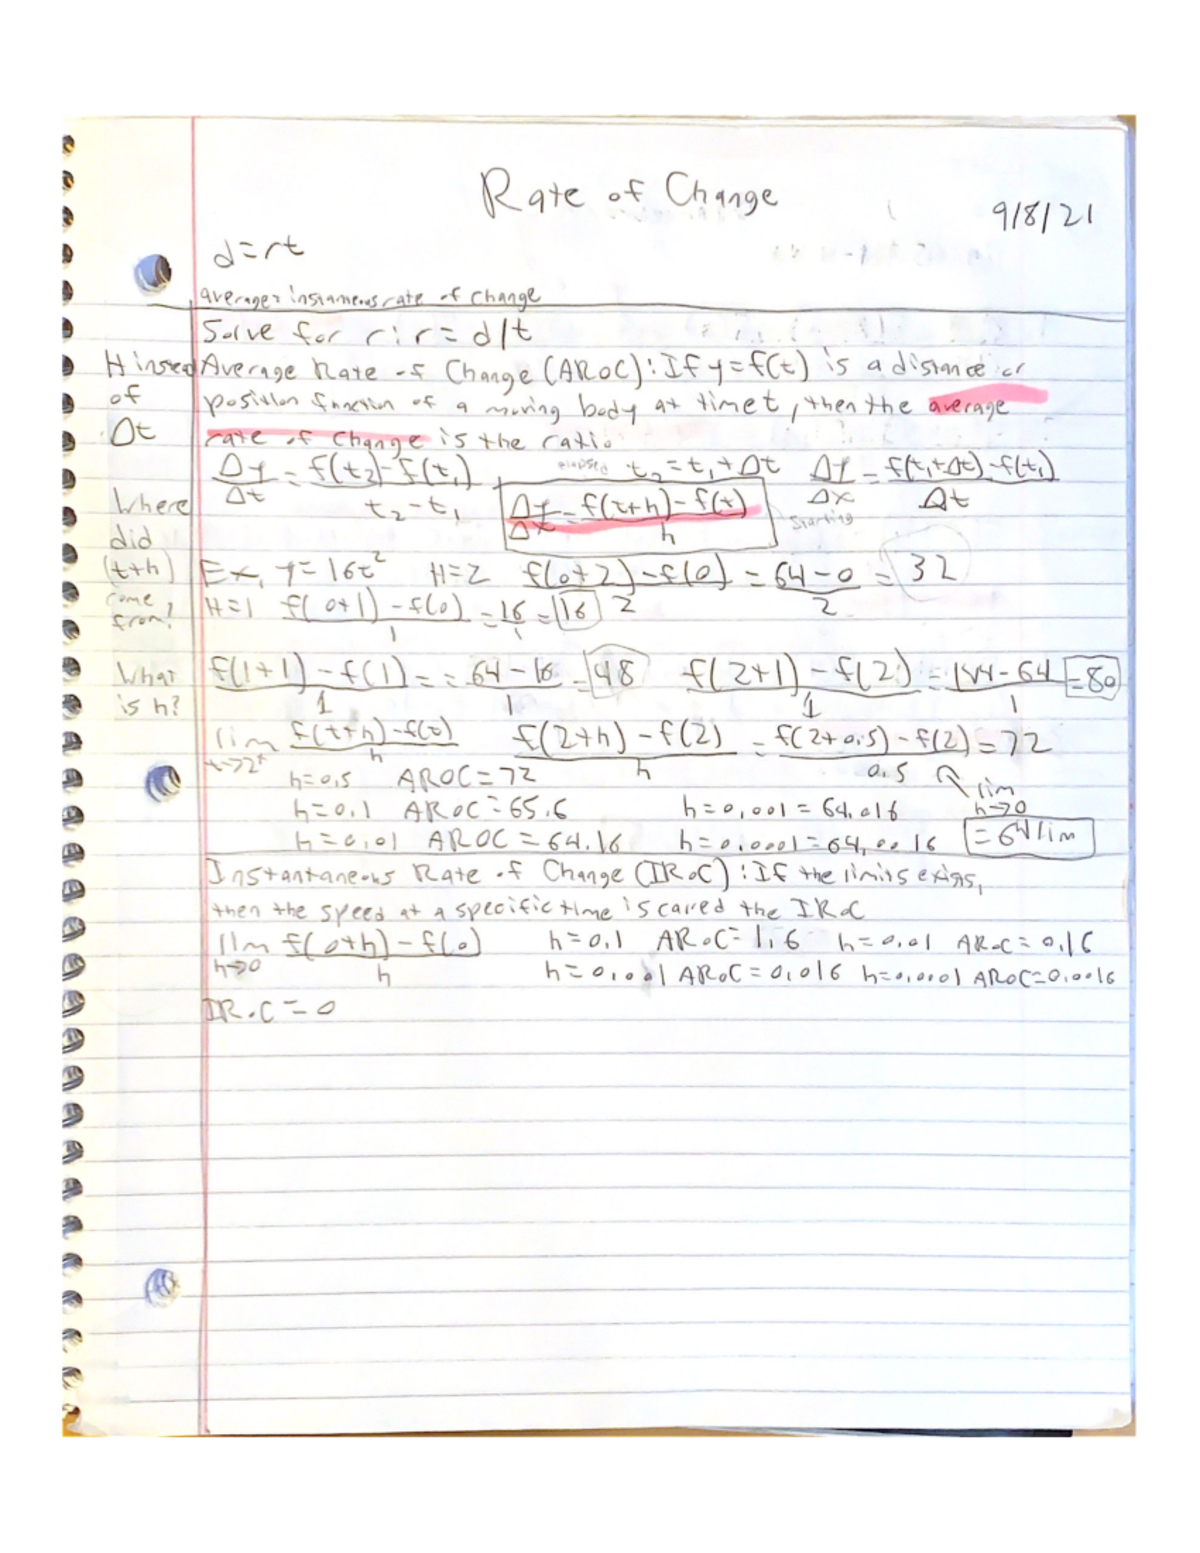 Rate of Change
9/8/21
d=rt
average & instaneous rate of change
Solve for r: r = d/t
H instead of Δt
Average Rate of Change (AROC): If y=f(t) is a distance or
position function of a moving body at time t, then the average
rate of change is the ratio
Δy/Δt = f(t₂)-f(t₁)/t₂-t₁, elapsed t₂ = t₁+Δt Δy/Δx = f(t₁+Δt)-f(t₁)/Δt
Δy/Δx = f(t+h)-f(t)/h starting
Where did (t+h) come from?
Ex, y=16t² H=2 f(0+2)-f(0)/2 = 64-0/2 = 32
H=1 f(0+1)-f(0)/1 = 16/1 = 16
What is h?
f(1+1)-f(1)/1 = = 64-16/1 = 48 f(2+1)-f(2)/1 = 144-64/1 = 80
lim f(t+h)-f(t)/h f(2+h)-f(2)/h = f(2+0.5)-f(2)/0.5 = 72
h=0.5 AROC=72
lim h→0
h=0.1 AROC=65.6 h=0.001=64.016
h=0.01 AROC=64.16 h=0.0001=64.0016 =64 lim
Instantaneous Rate of Change (IROC): If the limits exists,
then the speed at a specific time is called the IROC
lim h→0 f(0+h)-f(0)/h h=0.1 AROC=1.6 h=0.01 AROC=0.16
h=0.001 AROC=0.016 h=0.0001 AROC=0.0016
IROC=0